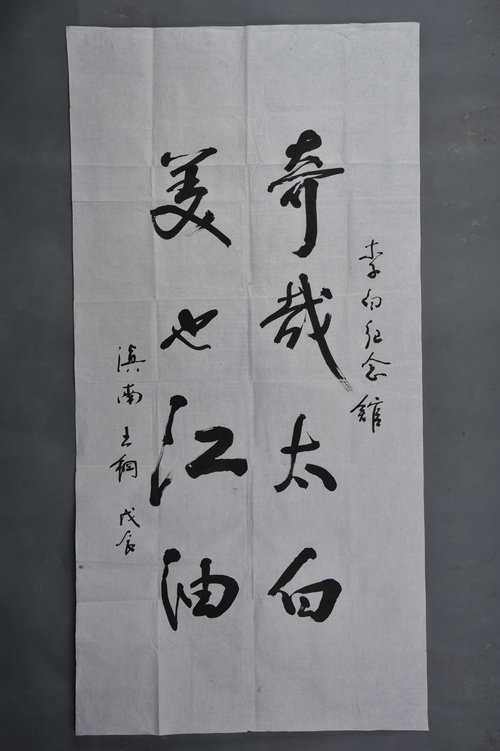 李白纪念馆
奇哉太白
美也江油
滇南王桐戊辰